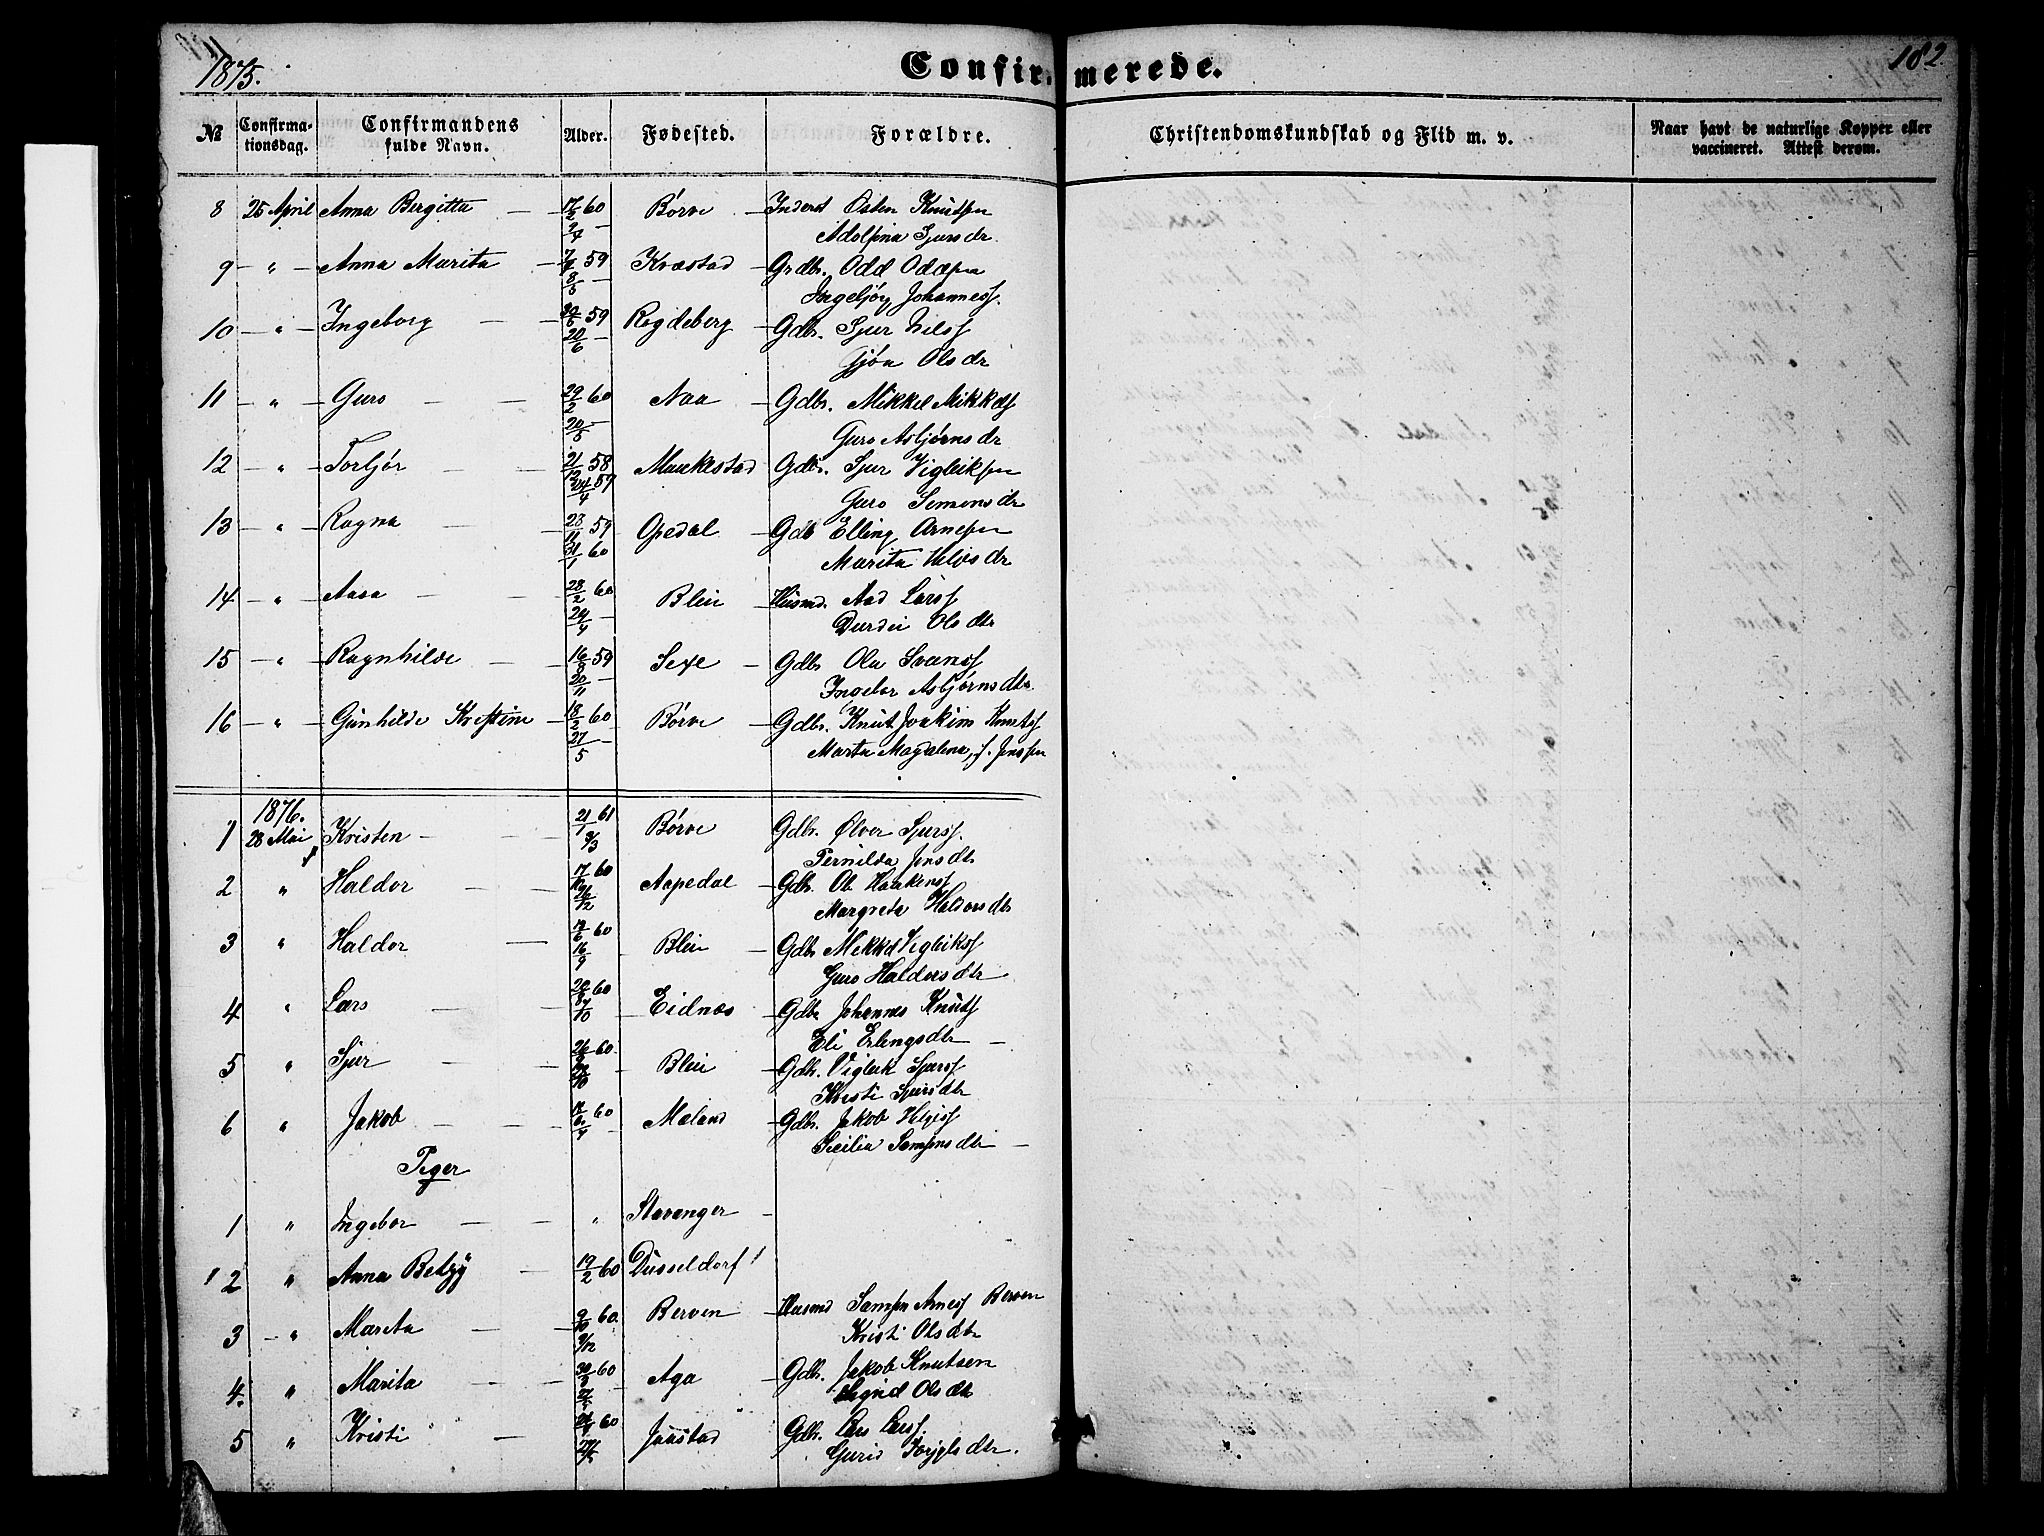 1875.
Confirmerede.
182
№
Confirmationsdag.
Confirmandens fulde Navn.
Alder.
Fødested.
Forældre.
Christendomskundskab og Flid m. v.
Naar havt de naturlige Kopper eller vaccineret. Attest derom.
8 25 April Anna Bergitta 17/2 60 Børve Inderst Østen Knutsen
Adolfina Sjursdr.
9 " Anna Marita 59 Kvæstad Grdbr. Odd Oddsen
8/5 Ingebjørg Johannesf.
10 " Ingeborg 59 Rogdeberg Gdbr. Sjur Nilsf
20/6 Gjøa Olsdr
11 " Guro 29/2 60 Naa Gdbr. Mikkel Mikkelsf
20/5 Guro Asbjørnsdr
12 " Torbjør 21/12 58 Maakestad Gdbr. Sjur Vigleiksen
24/4 57 Guro Simonsdr
13 " Ragna 28/11 59 Opedal Gdb Elling Arnesen
31/1 60 Marita
14 " Aasa 28/2 60 Bleie Husmd. Aad Larsf
24/4 Durdei Olsdtr
15 " Ragnhilde 59 Sexe Gdbr Ola Svensf
20/11 Ingebor Asbjørnsdtr.
16 " Gunhilde Kristine 18/2 60 Børve Gdbr. Knut Joakim Knutsf
27/5 Marta Magdalena, f. Jensen
1876.
1 28 Mai Kristen 21/1 61 Børve Gdbr. Ølver Sjursf.
9/3 Pernilda Jensdtr
2 " Haldor 60 Aapedal Gdbr. Ole Haakensf
Margreta Haldorsdtr
3 " Haldor 60 Bleie Gdbr Mikkel Vigleiksf
16/9 Guro Haldorsdtr
4 " Lars 60 Eidnes Gdbr Johannes Knutsf
Eli Erlingsdtr
5 " Sjur 60 Bleie Gdbr. Vigleik Sjursf
Kristi Sjursdtr
6 " Jakob 60 Mæland Gdbr. Jakob Helgesf
Sicilia Samsonsdtr
Piger
1 " Ingebor " Stavanger
2 " Anna Betzy 60 Düsseldorf
3 " Marita 60 Berven Husmd Samson Arnesf Berven
9/12 Kristi Olsdtr
4. " Marita 60 Aga Gdbr. Jakob Knutsen
Sigrid Olsdtr
5 " Kristi 60 Jaastad Gdbr. Lars Larsf.
Gurid Torjelsdtr.